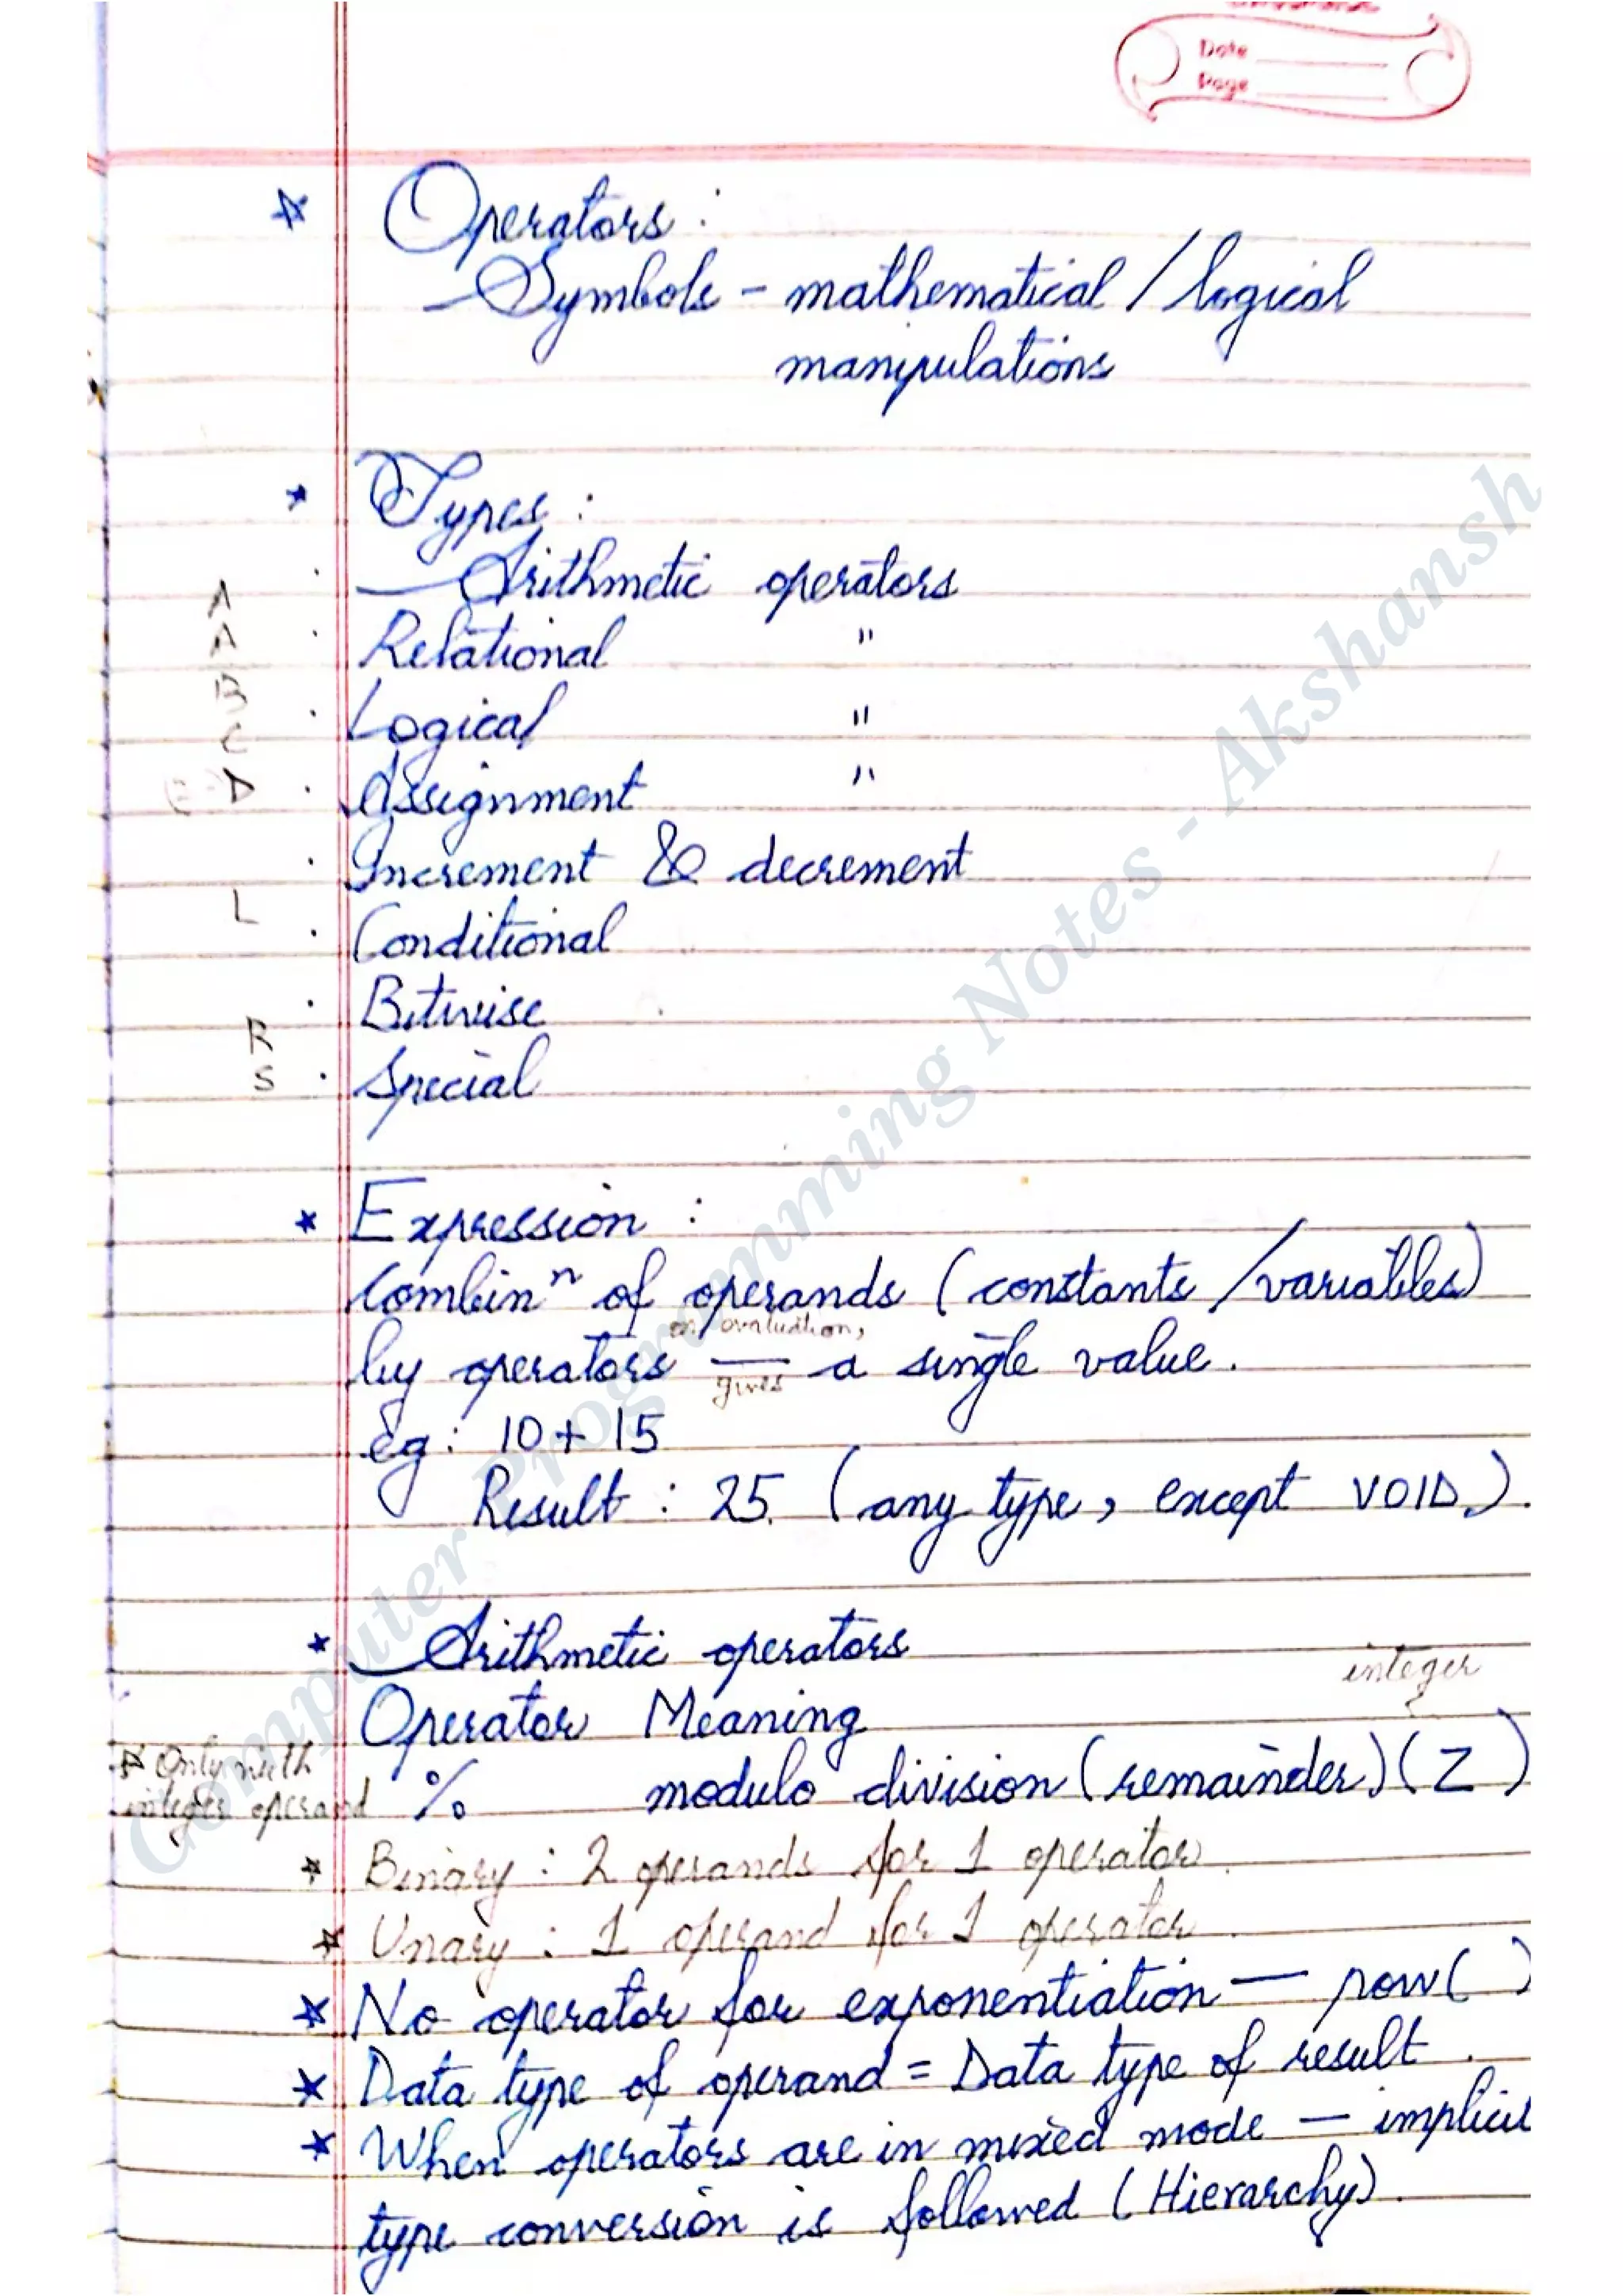 Date
Page
Operators :
Symbols - mathematical / logical
manipulations
Types :
A
Arithmetic operators
A
Relational "
B
Logical "
C
Assignment "
D
Increment & decrement
L
Conditional
Bitwise
R
Special
S
Expression :
Combinⁿ of operands (constants / variables)
on evaluation,
by operators — a single value.
gives
eg : 10 + 15
Result : 25. (any type, except VOID).
Arithmetic operators
integer
Operator Meaning
Only with
integer operand
% modulo division (remainder) (Z)
Binary : 2 operands for 1 operator.
Unary : 1 operand for 1 operator.
No operator for exponentiation — pow( )
Data type of operand = Data type of result.
When operators are in mixed mode — implicit
type conversion is followed (Hierarchy).
Computer Programming Notes - Akshansh